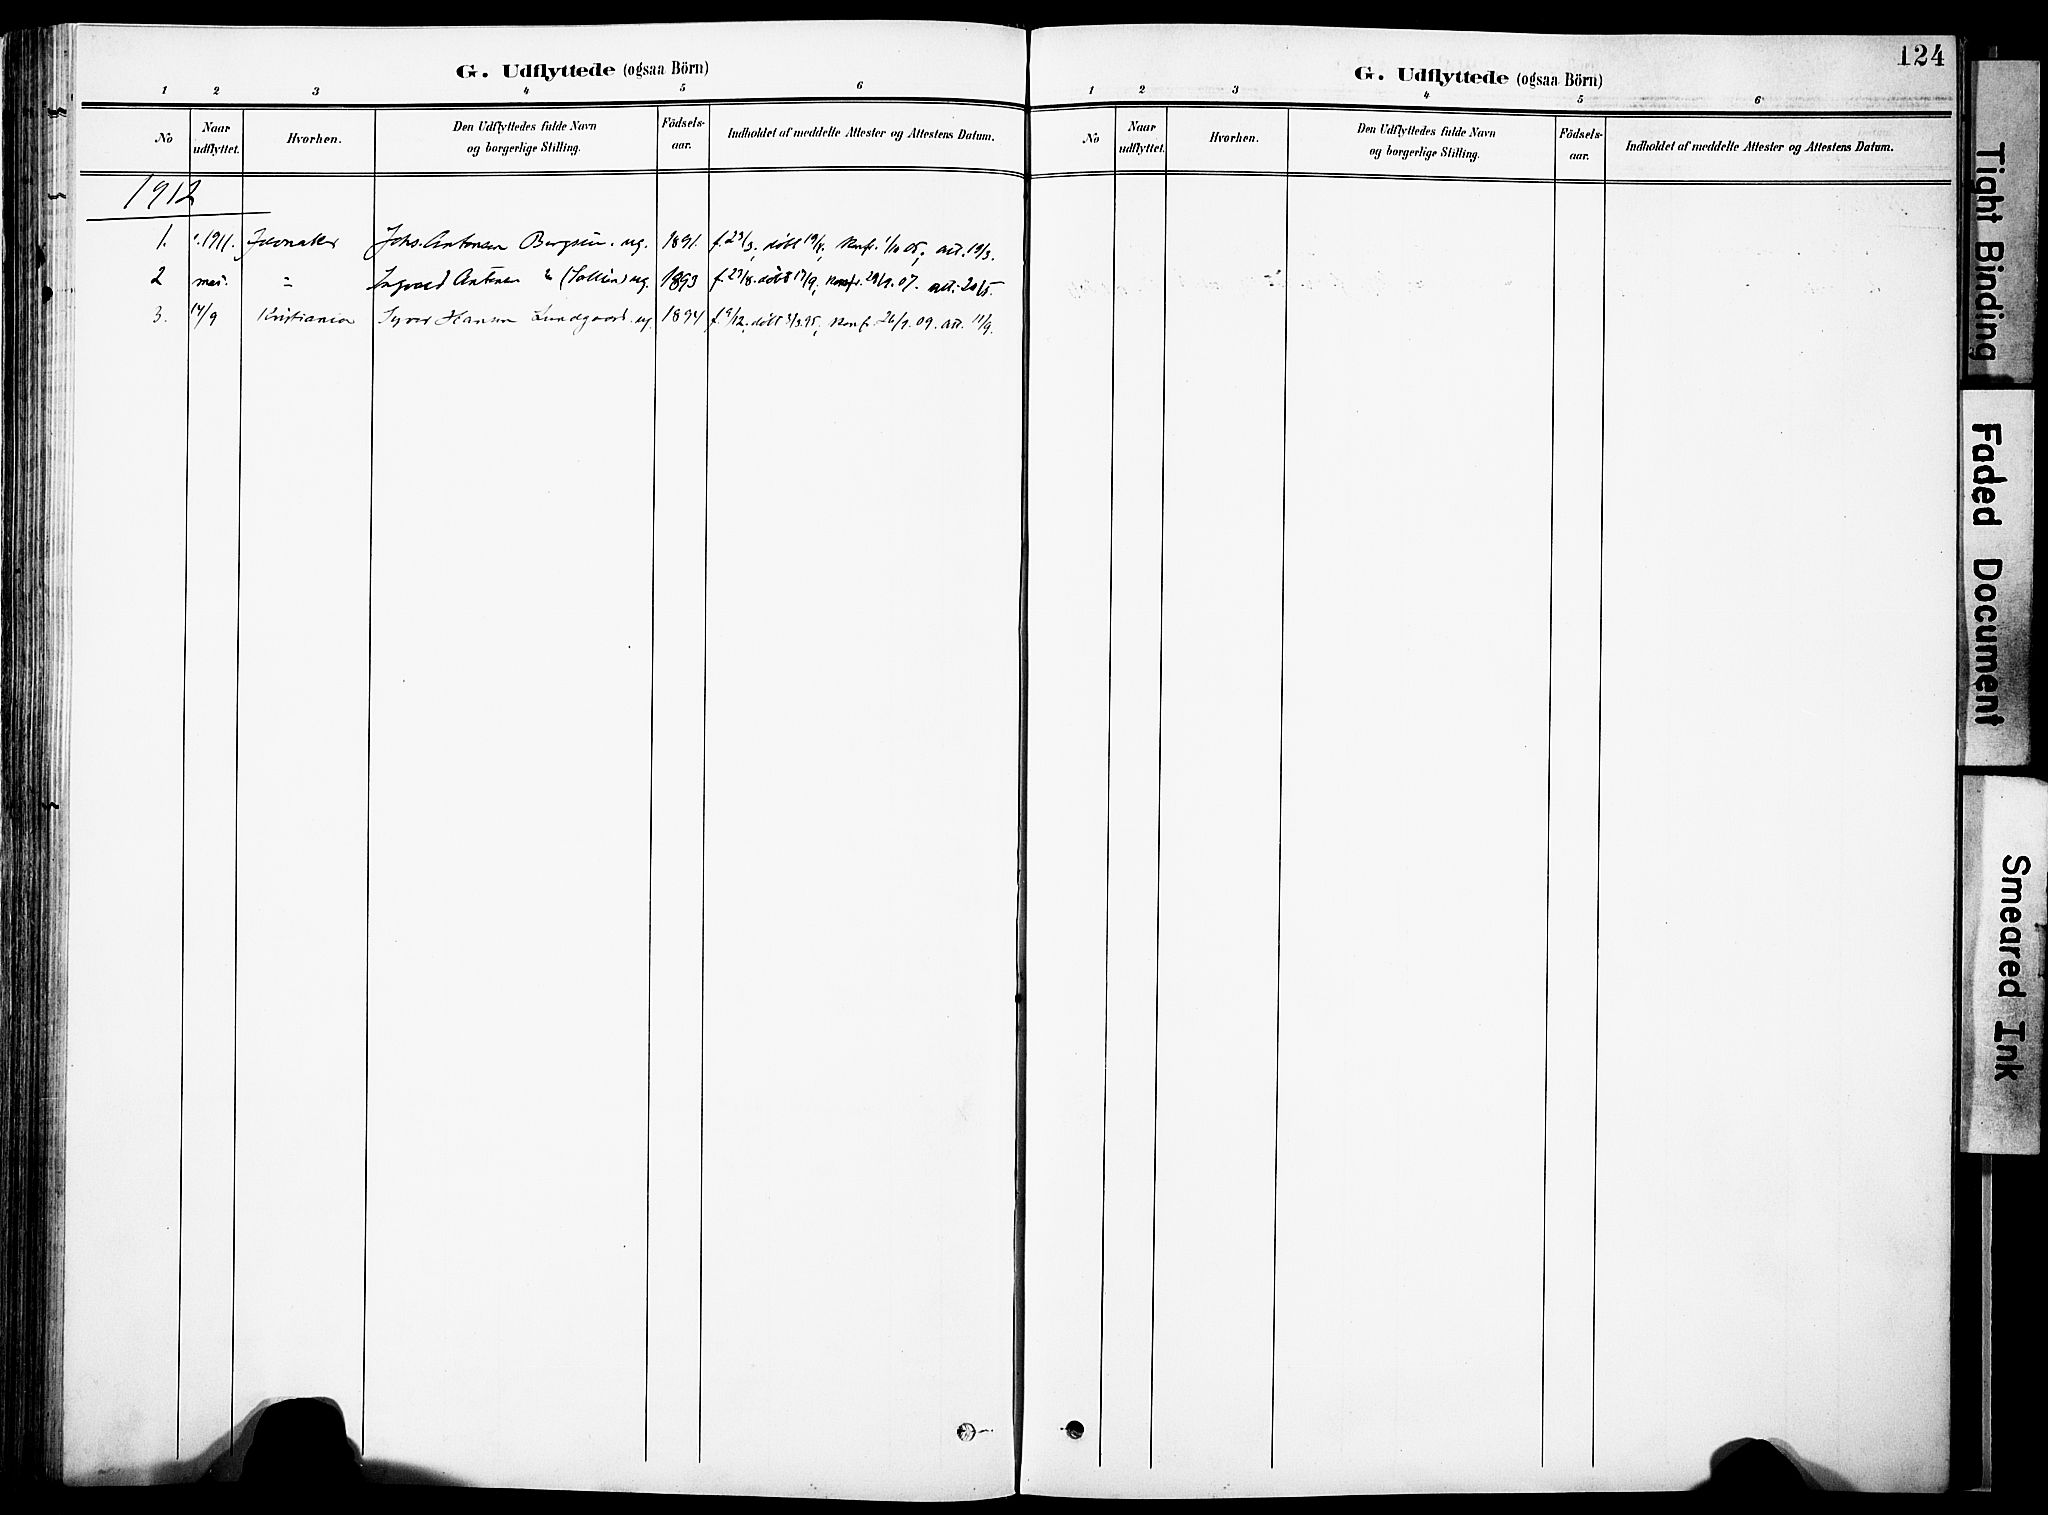 G. Udflyttede (ogsaa Börn)
1 2 3 4 5 6
No Naar udflyttet. Hvorhen. Den Udflyttedes fulde Navn og borgerlige Stilling. Födsels-aar. Indholdet af meddelte Attester og Attestens Datum.
1912
1. 1911. Jevnaker Johs. Antonsen Bergsun. ug. 1891. f. 29/3, döbt 19/4, konfr. 1/10 05, att. 19/3.
2 mai. " Ingvald Antonsen " (Sollien) ug. 1893 f. 27/8. döbt 17/9, konfr. 29/9. 07. att. 20/5.
3. 14/9 Kristiania Syver Hansen Lundgaard. ug. 1894 f. 9/12. döbt 3/3.95, konfr. 26/9. 09. att. 11/9.
124
G. Udflyttede (ogsaa Börn)
1 2 3 4 5 6
No Naar udflyttet. Hvorhen. Den Udflyttedes fulde Navn og borgerlige Stilling. Födsels-aar. Indholdet af meddelte Attester og Attestens Datum.
Tight Binding
Faded Document
Smeared Ink